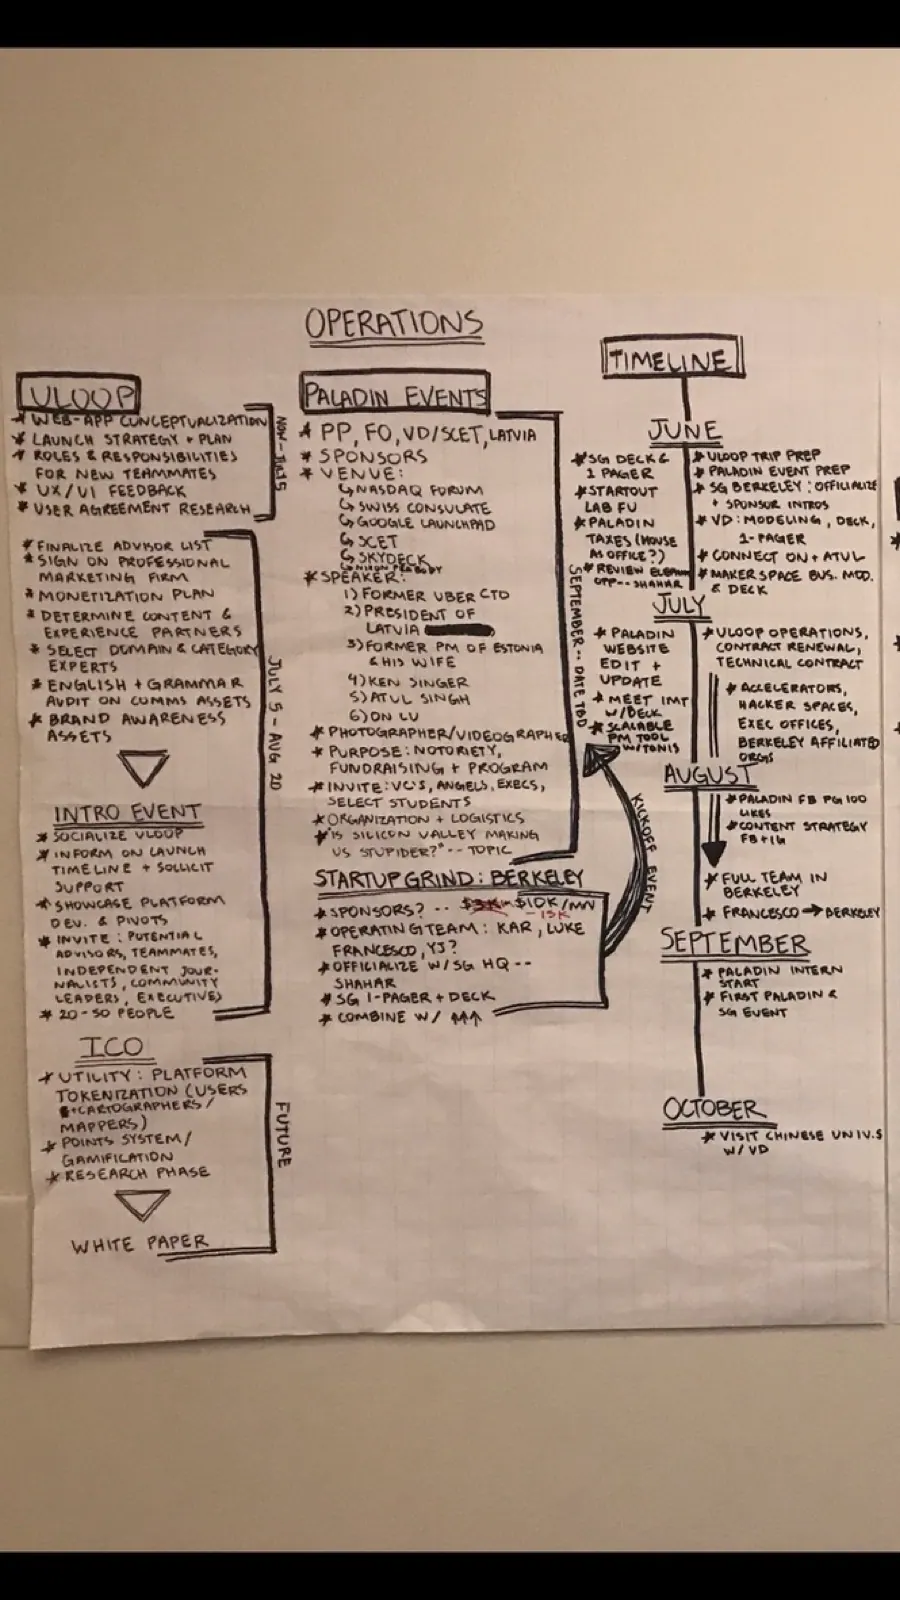 OPERATIONS
VLOOP
* WEB-APP CONCEPTUALIZATION
* LAUNCH STRATEGY + PLAN
* ROLES & RESPONSIBILITIES
FOR NEW TEAMMATES
* UX/UI FEEDBACK
* USER AGREEMENT RESEARCH
* FINALIZE ADVISOR LIST
* SIGN ON PROFESSIONAL
MARKETING FIRM
* MONETIZATION PLAN
* DETERMINE CONTENT &
EXPERIENCE PARTNERS
* SELECT DOMAIN & CATEGORY
EXPERTS
* ENGLISH + GRAMMAR
AUDIT ON COMMS ASSETS
* BRAND AWARENESS
ASSETS
JULY 5 - AUG 20
INTRO EVENT
* SOCIALIZE VLOOP
* INFORM ON LAUNCH
TIMELINE + SOLLICIT
SUPPORT
* SHOWCASE PLATFORM
DEV. & PIVOTS
* INVITE: POTENTIAL
ADVISORS, TEAMMATES,
INDEPENDENT JOUR-
NALISTS, COMMUNITY
LEADERS, EXECUTIVES)
* 20-50 PEOPLE
ICO
* UTILITY: PLATFORM
TOKENIZATION (USERS
+CARTOGRAPHERS/
MAPPERS)
* POINTS SYSTEM/
GAMIFICATION
* RESEARCH PHASE
FUTURE
WHITE PAPER
PALADIN EVENTS
* PP, FO, VD/SCET, LATVIA
* SPONSORS
* VENUE:
↳ NASDAQ FORUM
↳ SWISS CONSULATE
↳ GOOGLE LAUNCHPAD
↳ SCET
↳ SKYDECK
↳ NIXON PEABODY
* SPEAKER:
1) FORMER UBER CTO
2) PRESIDENT OF
LATVIA
3) FORMER PM OF ESTONIA
& HIS WIFE
4) KEN SINGER
5) ATUL SINGH
6) ON LU
* PHOTOGRAPHER/VIDEOGRAPHER
* PURPOSE: NOTORIETY,
FUNDRAISING + PROGRAM
* INVITE: VC'S, ANGELS, EXECS,
SELECT STUDENTS
* ORGANIZATION + LOGISTICS
* "IS SILICON VALLEY MAKING
US STUPIDER?" -- TOPIC
SEPTEMBER -- DATE TBD
STARTUP GRIND: BERKELEY
* SPONSORS? -- $10K/MN
-15K
* OPERATING TEAM: KAR, LUKE
FRANCESCO, YJ?
* OFFICIALIZE W/ SG HQ --
SHAHAR
* SG 1-PAGER + DECK
* COMBINE W/ ↑↑↑
KICKOFF EVENT
TIMELINE
JUNE
* SG DECK &
1 PAGER
* STARTOUT
LAB FU
* PALADIN
TAXES (HOUSE
AS OFFICE?)
* REVIEW
OPP -- SHAHAR
* VLOOP TRIP PREP
* PALADIN EVENT PREP
* SG BERKELEY: OFFICIALIZE
+ SPONSOR INTROS
* VD: MODELING, DECK,
1-PAGER
* CONNECT ON + ATUL
* MAKERSPACE BUS. MOD.
& DECK
JULY
* PALADIN
WEBSITE
EDIT +
UPDATE
* MEET IMT
W/DECK
* SCALABLE
PM TOOL
W/TONIS
* VLOOP OPERATIONS,
CONTRACT RENEWAL,
TECHNICAL CONTRACT
* ACCELERATORS,
HACKER SPACES,
EXEC OFFICES,
BERKELEY AFFILIATED
ORGS
AUGUST
* PALADIN FB PG 100
LIKES
* CONTENT STRATEGY
FB + IG
* FULL TEAM IN
BERKELEY
* FRANCESCO → BERKELEY
SEPTEMBER
* PALADIN INTERN
START
* FIRST PALADIN &
SG EVENT
OCTOBER
* VISIT CHINESE UNIV.S
W/ VD